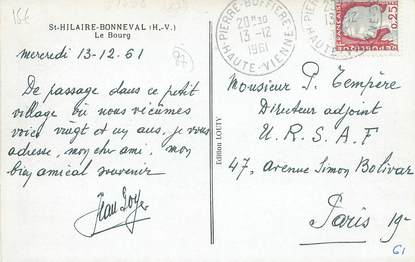 166
St-HILAIRE-BONNEVAL (H.-V.)
Le Bourg
mercredi 13-12-61
87
De passage dans ce petit
village où nous vécûmes
voici vingt et un ans, je vous
adresse, mon cher ami, mon
bien amical souvenir
Edition LOUTY
PIERRE-BUFFIERE
13-12
1961
HAUTE-VIENNE
PIERRE-BUFFIERE
13-12
HAUTE-VIENNE
0,25F
Monsieur P. Tempère
Directeur adjoint
U.R.S.A.F
47, avenue Simon Bolivar
Paris 19e
61